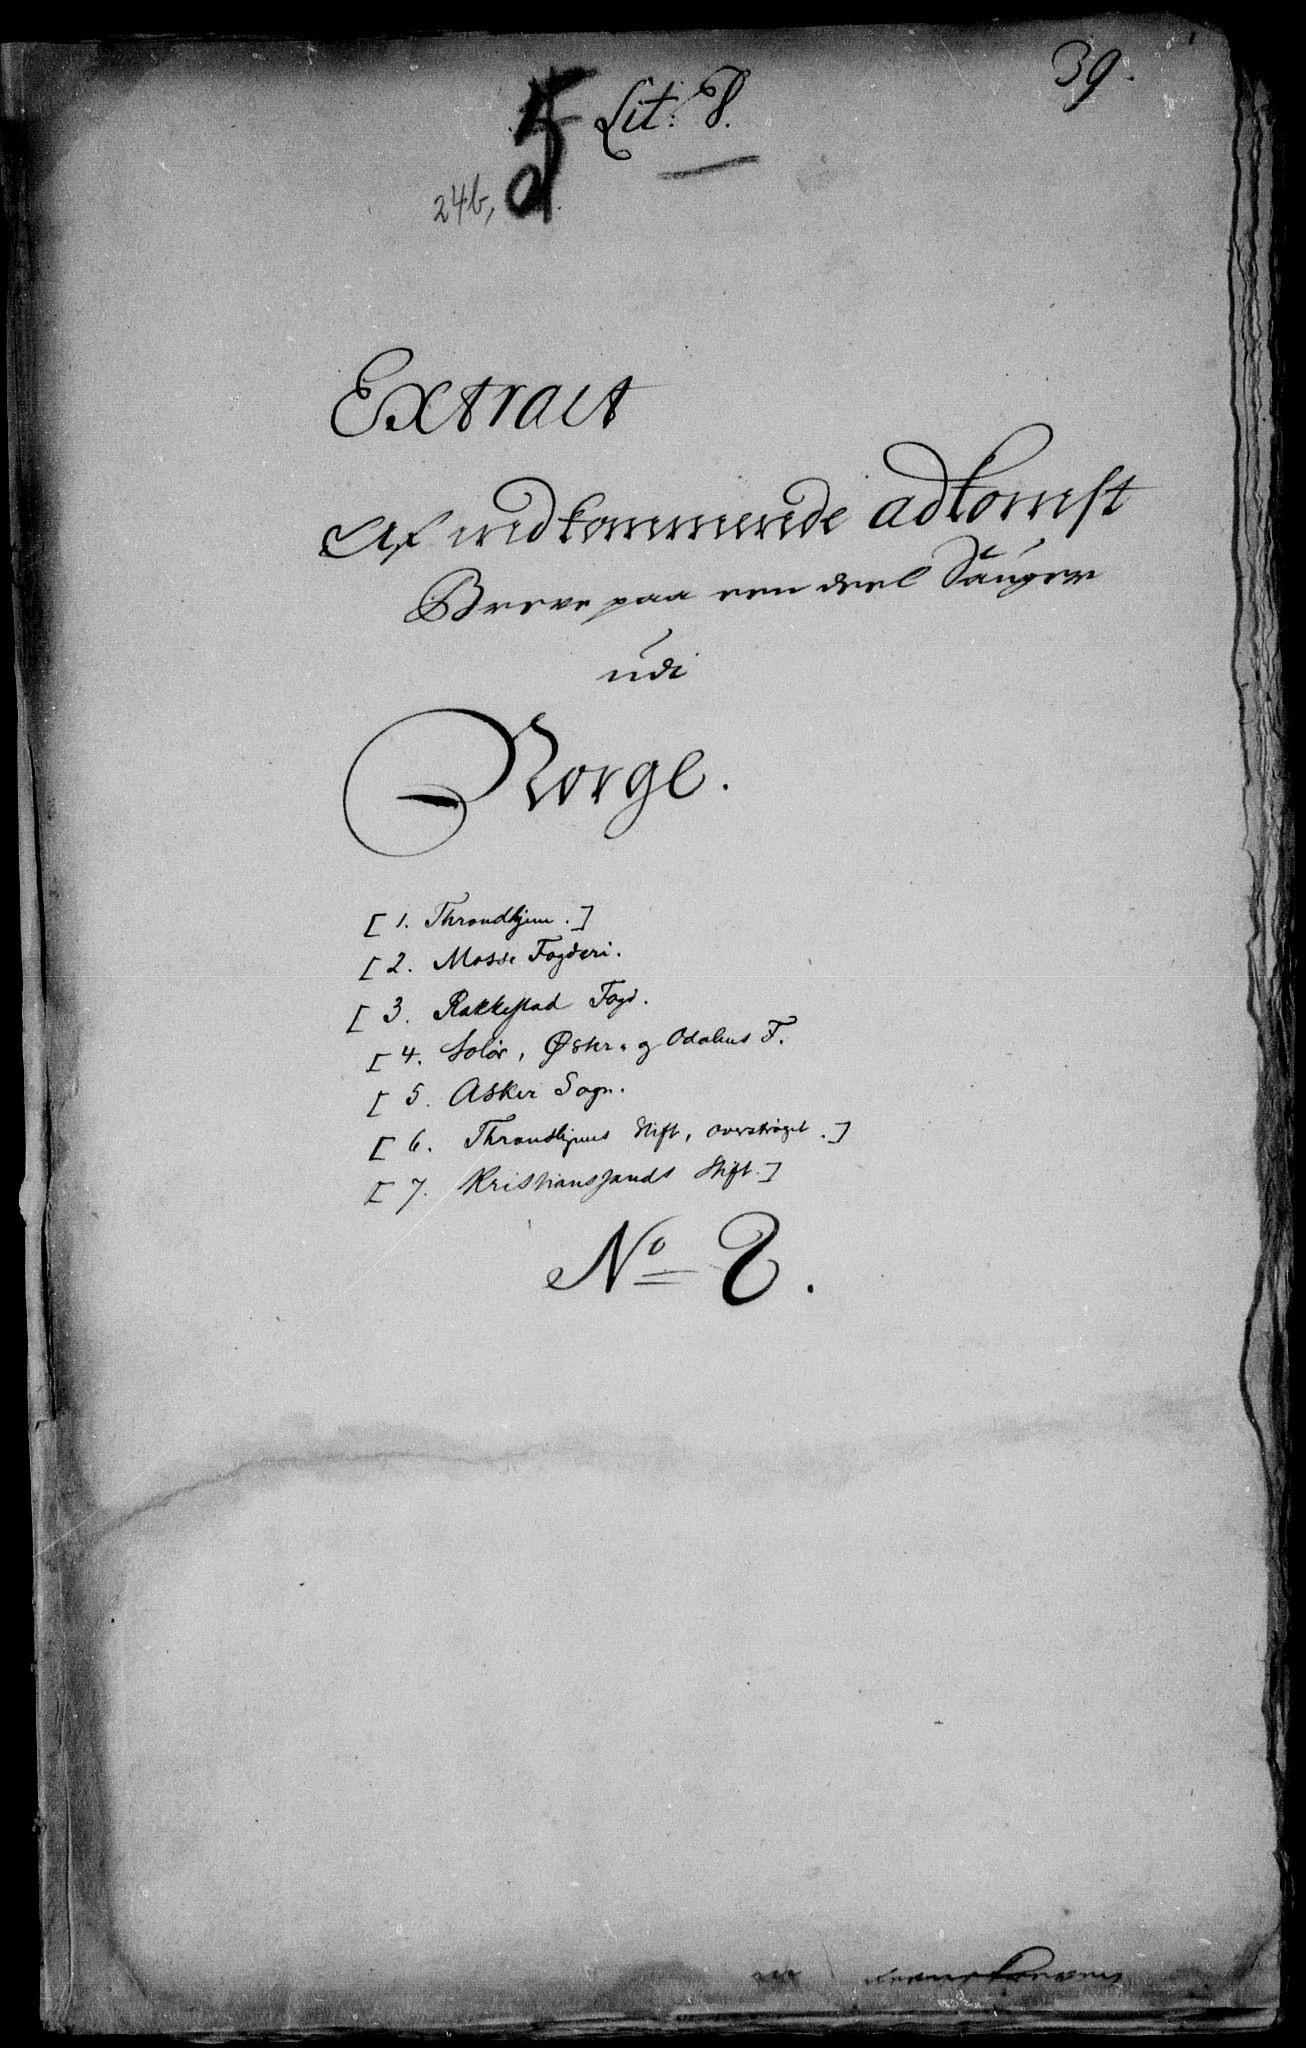 39.
Lit: V.
24b,
Extract
Af indkommende adkomst
Breve paa een deel Sauger
udi
Norge.
[ 1. Throndhjem . ]
[ 2. Mosse Fogderi.
[ 3. Rakkestad Fogd.
[ 4. Solør, Østr. og Odalens F.
[ 5. Asker Sogn.
[ 6. Throndhjems Stift, overstrøget . ]
[ 7. Kristianssands Stift. ]
No